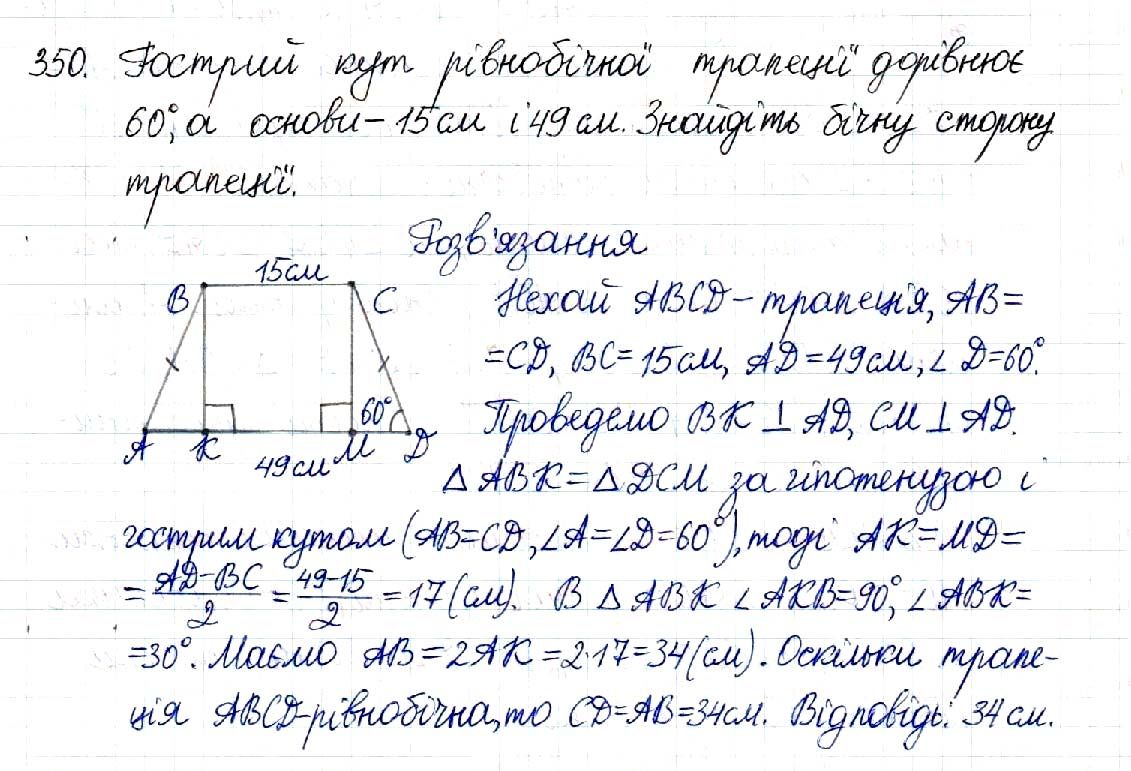 350. Гострий кут рівнобічної трапеції дорівнює
60°, а основи – 15 см і 49 см. Знайдіть бічну сторону
трапеції.
Розв'язання
15 см
B
C
60°
A
K
49 см
M
D
Нехай ABCD – трапеція, AB =
= CD, BC = 15 см, AD = 49 см, ∠ D = 60°.
Проведемо BK ⊥ AD, CM ⊥ AD.
△ ABK = △ DCM за гіпотенузою і
гострим кутом (AB = CD, ∠A = ∠D = 60°), тоді AK = MD =
= (AD – BC)/2 = (49 – 15)/2 = 17 (см). В △ ABK ∠ AKB = 90°, ∠ ABK =
= 30°. Маємо AB = 2AK = 2·17 = 34 (см). Оскільки трапе-
ція ABCD – рівнобічна, то CD = AB = 34 см. Відповідь: 34 см.